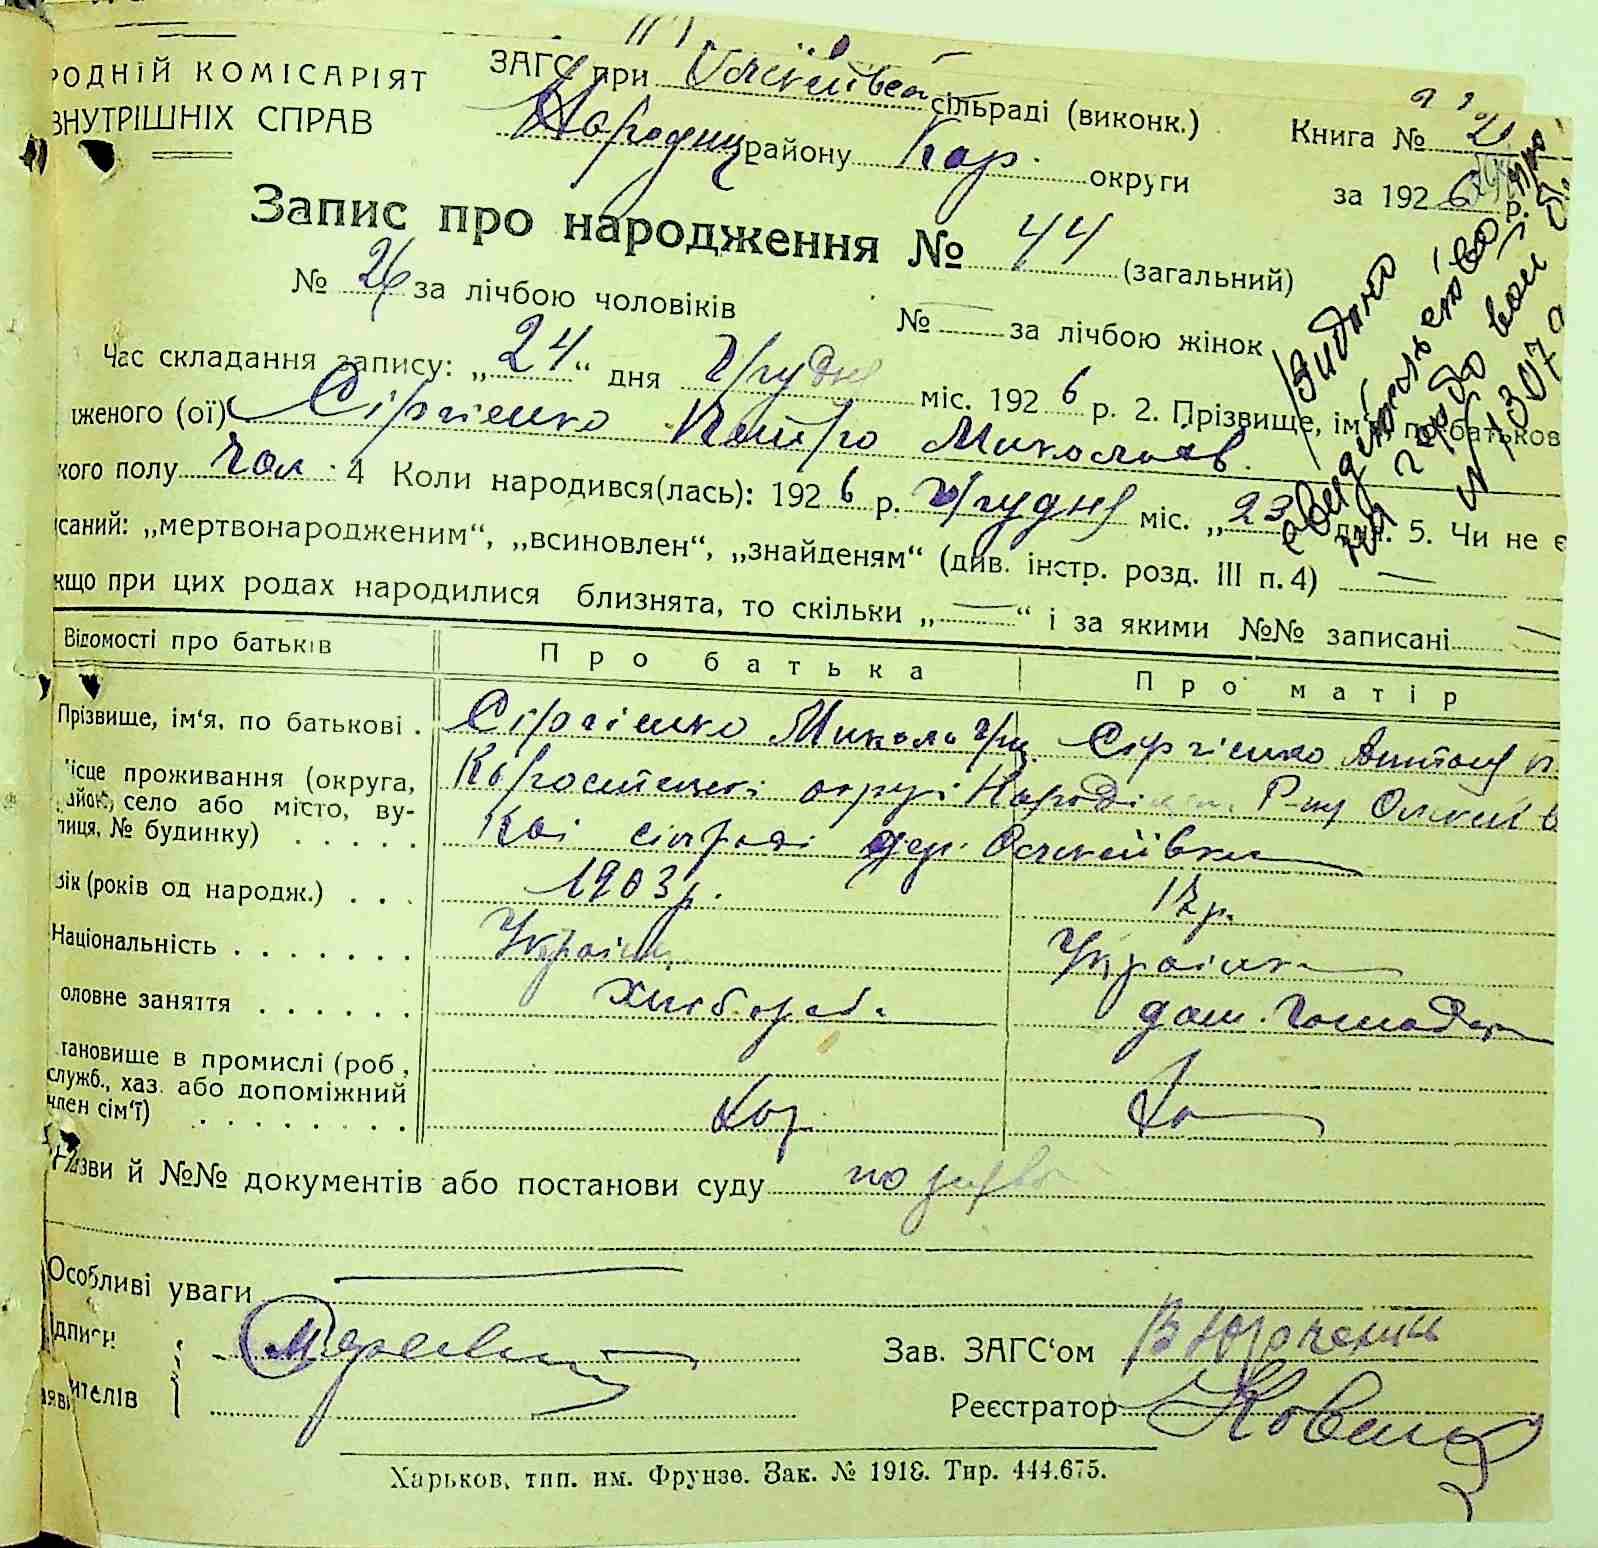 РОДНІЙ КОМІСАРІЯТ
ВНУТРІШНІХ СПРАВ
ЗАГС при сільраді (виконк.)
Народиц району Кор. округи
Книга № 2
за 1926 р.
Запис про народження № 44 (загальний)
№ 26 за лічбою чоловіків № — за лічбою жінок
Час складання запису: „24“ дня Грудня міс. 1926 р. 2. Прізвище, ім'я, по батькові
дженого (ої) Сіргієнко Петро Миколаїв.
ького полу Чол. 4 Коли народився(лась): 1926 р. Грудня міс. „23“ дня. 5. Чи не є
исаний: „мертвонародженим“, „всиновлен“, „знайденям“ (див. інстр. розд. III п. 4) —
кщо при цих родах народилися близнята, то скільки „—“ і за якими №№ записані —
Видано
свидітельство
№ 1307
Відомості про батьків Про батька Про матір
Прізвище, ім'я, по батькові . Сіргієнко Микола Гри. Сіргієнко
місце проживання (округа, район, село або місто, вулиця, № будинку) . . . . . Коростенскі округі Р-ну
кої сільраді дер.
Вік (років од народж.) . . . 1903 р. 17 р.
Національність . . . . . . . Україн. Українка
оловне заняття . . . . . . Хлібороб. дом. Господар
тановище в промислі (роб.,
служб., хаз. або допоміжний
член сім'ї) . . . . . . . . Хаз.
Назви й №№ документів або постанови суду по
Особливі уваги —
ідписи
явителів
Зав. ЗАГС'ом
Реєстратор
Харьков, тип. им. Фрунзе. Зак. № 1918. Тир. 444.675.